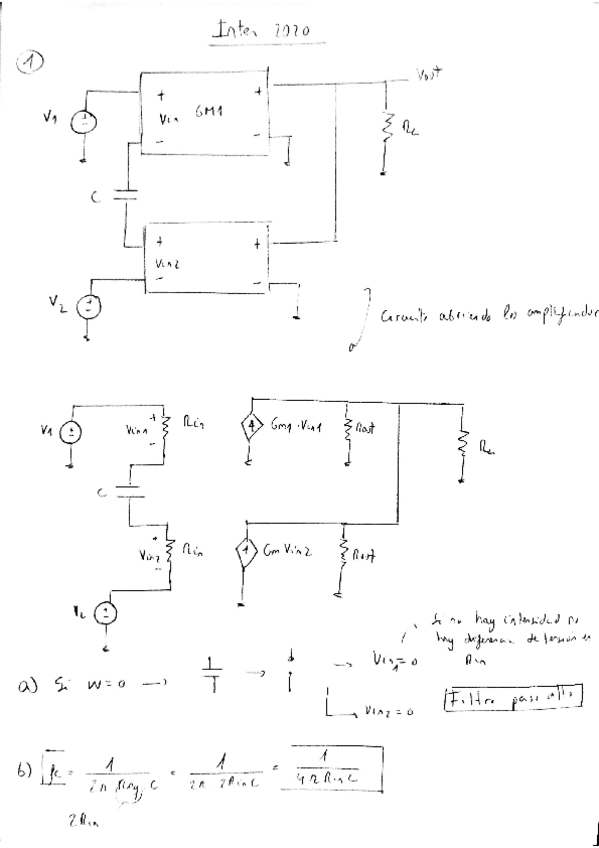 Inter 2020
1
Vout
V1
+
Vin
-
GM1
+
-
RL
C
+
Vin2
-
+
-
V2
Circuito abriendo los amplificador
V1
+
Vin1
-
Rin
Gm1·Vin1
Rout
RL
C
+
Vin2
-
Rin
Gm Vin2
Rout
V2
Si no hay intensidad no
hay diferencia de tensión en
Rin
a) Si w=0 → → → Vin1=0
Vin2=0
Filtro paso alto
b) fc = 1 / 2π Req C = 1 / 2π 2Rin C = 1 / 4π Rin C
2Rin